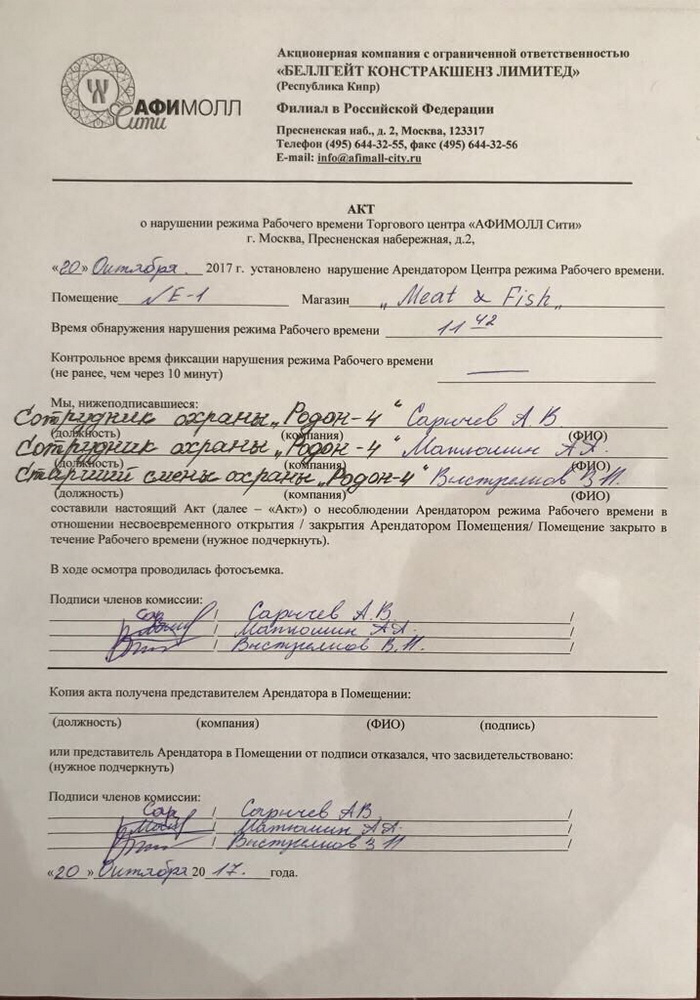 АФИМОЛЛ
Сити
Акционерная компания с ограниченной ответственностью
«БЕЛЛГЕЙТ КОНСТРАКШЕНЗ ЛИМИТЕД»
(Республика Кипр)
Филиал в Российской Федерации
Пресненская наб., д. 2, Москва, 123317
Телефон (495) 644-32-55, факс (495) 644-32-56
E-mail: info@afimall-city.ru
АКТ
о нарушении режима Рабочего времени Торгового центра «АФИМОЛЛ Сити»
г. Москва, Пресненская набережная, д.2,
«20» Октября 2017 г. установлено нарушение Арендатором Центра режима Рабочего времени.
Помещение √E-1 Магазин „Meat & Fish„
Время обнаружения нарушения режима Рабочего времени 11 42
Контрольное время фиксации нарушения режима Рабочего времени —
(не ранее, чем через 10 минут)
Мы, нижеподписавшиеся:
Сотрудник охраны „Родон-4“ Саричев А.В
(должность) (компания) (ФИО)
Сотрудник охраны „Родон-4“ Матюшин А.А.
(должность) (компания) (ФИО)
Старший смены охраны „Родон-4“
(должность) (компания) (ФИО)
составили настоящий Акт (далее – «Акт») о несоблюдении Арендатором режима Рабочего времени в
отношении несвоевременного открытия / закрытия Арендатором Помещения/ Помещение закрыто в
течение Рабочего времени (нужное подчеркнуть).
В ходе осмотра проводилась фотосъемка.
Подписи членов комиссии:
Сар / Саричев А.В. /
/ Матюшин А.А. /
/ /
Копия акта получена представителем Арендатора в Помещении:
(должность) (компания) (ФИО) (подпись)
или представитель Арендатора в Помещении от подписи отказался, что засвидетельствовано:
(нужное подчеркнуть)
Подписи членов комиссии:
Сар / Саричев А.В. /
/ Матюшин А.А. /
/ /
«20» Октября 2017. года.